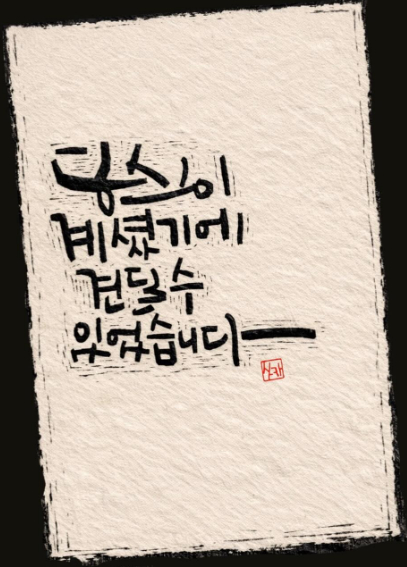 당신이
계셨기에
견딜 수
있었습니다